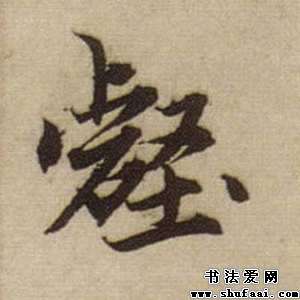 壑
书法爱网
www.shufaai.com